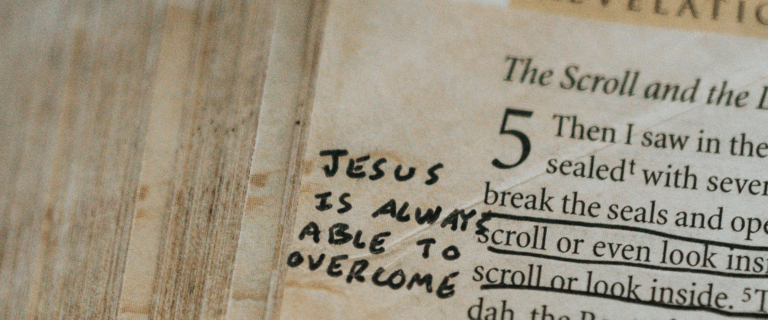 REVELATIO
The Scroll and the
5 Then I saw in the
sealedᵗ with seve
break the seals and ope
scroll or even look insi
scroll or look inside. ⁵T
dah, the R
JESUS
IS ALWAYS
ABLE TO
OVERCOME